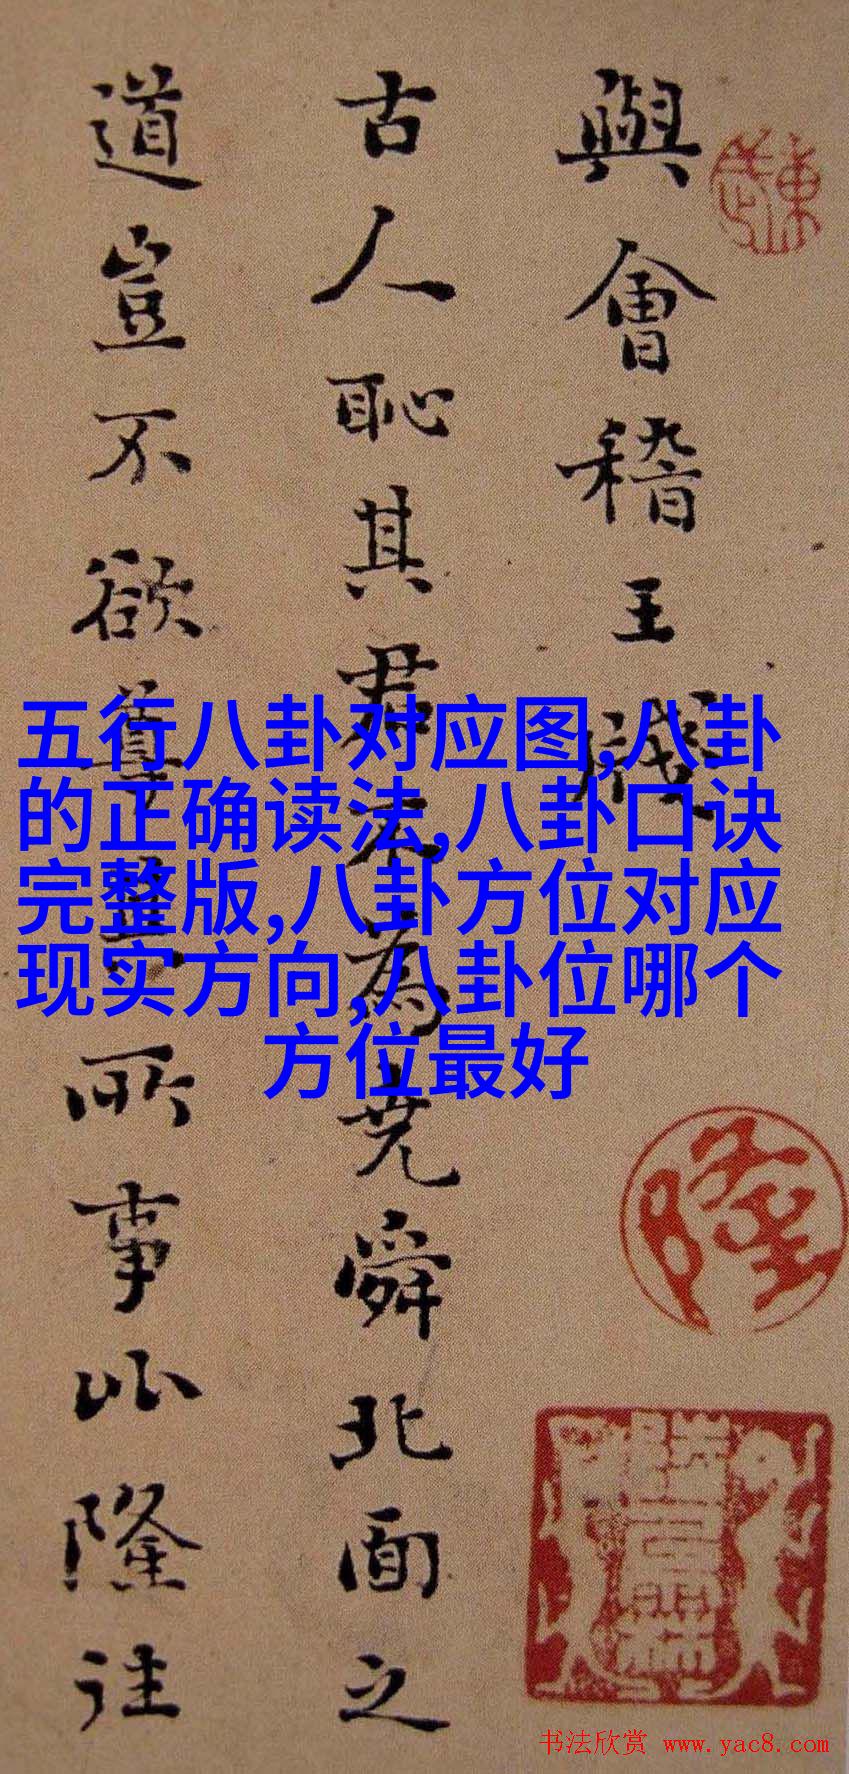 與會稽王牋
古人恥其君不為堯舜北面之
道豈不欲尊其所事比隆往
五行八卦对应图,八卦
的正确读法,八卦口诀
完整版,八卦方位对应
现实方向,八卦位哪个
方位最好
隆
书法欣赏 www.yac8.com